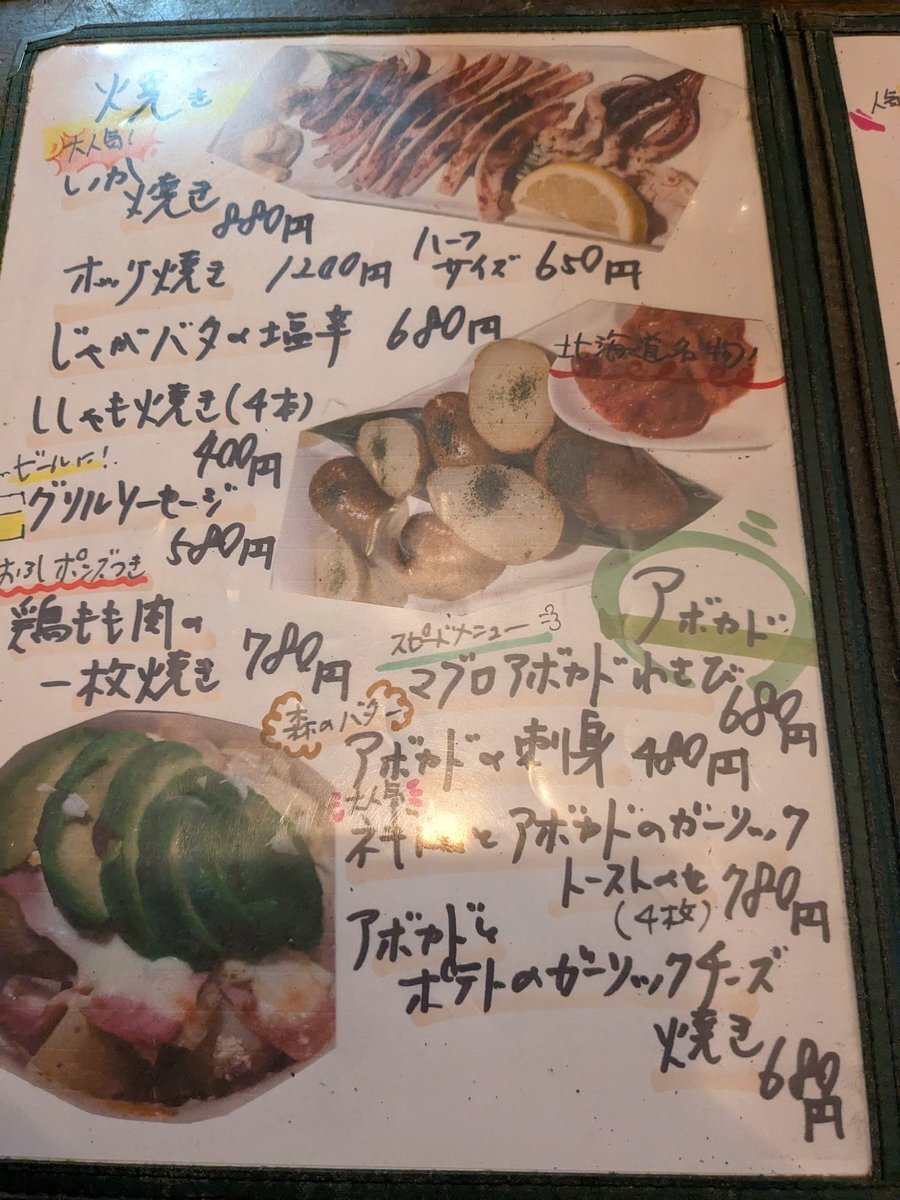 焼き
大人気!
いか焼き 880円
ホッケ焼き 1200円 ハーフサイズ 650円
じゃがバタの塩辛 680円
北海道名物!
ししゃも焼き(4本)
400円
ビールに!
グリルソーセージ
580円
おろしポンズつき
鶏もも肉の
一枚焼き 780円
アボカド
スピードメニュー
マグロアボカドわさび
680円
森のバター
アボカドの刺身 480円
大人気
ネギ とアボカドのガーリック
トーストのせ
(4枚) 780円
アボカドと
ポテトのガーリックチーズ
焼き 680円
人気